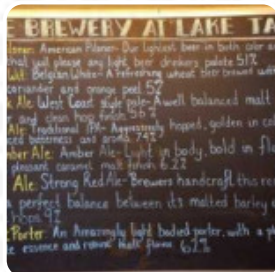 E BREWERY AT LAKE TA
American Pilsner- Our lightest beer in both color a
that will please any light beer drinkers palate 5.1%
Wit: Belgian White- A refreshing wheat beer brewed with
coriander and orange peel 5%
Ale: West Coast style pale- A well balanced malt
and clean hop finish 5.6%
Ale: Traditional IPA- Aggressively hopped, golden in col
bitterness and aroma 7.2%
mber Ale: Amber Ale- Light in body, bold in fla
pleasant caramel malt finish 6.2%
Ale: Strong Red Ale- Brewers handcraft this re
a perfect balance between its malted barley
hops 9%
Porter: An Amazingly light bodied porter, with a
essence and malt flavor 6.2%